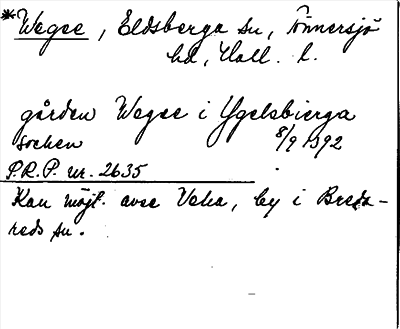 *Wegee, Eldsberga sn, Tönnersjö
hd, Hall. l.
gården Wegee i Ygelsbierga
sochen 8/9 1392
P.R.P. nr. 2635
Kan möjl. avse Veka, by i Breda-
reds sn.